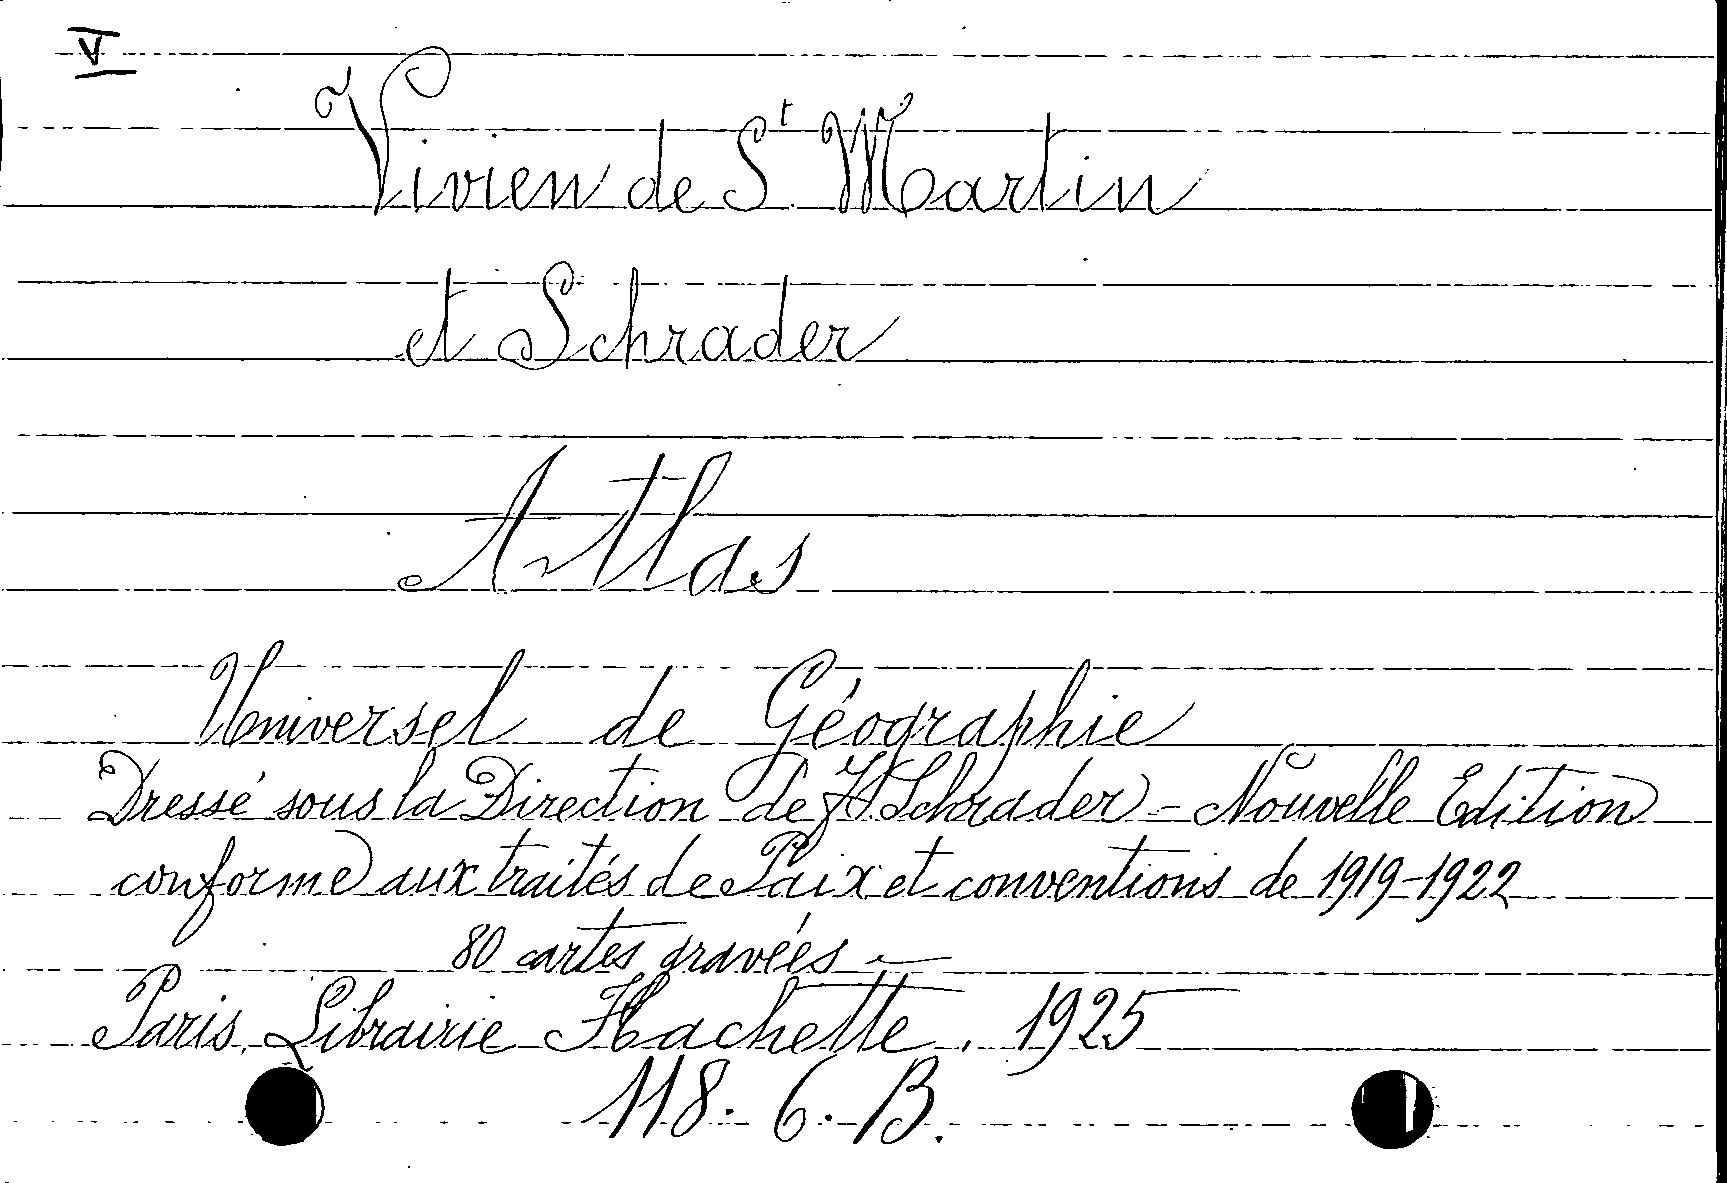 V
Vivien de St Martin
et Schrader
Atlas
Universel de Géographie
Dressé sous la Direction de F. Schrader - Nouvelle Edition
conforme aux traités de Paix et conventions de 1919-1922
80 cartes gravées -
Paris, Librairie Hachette. 1925
118. 6. B.